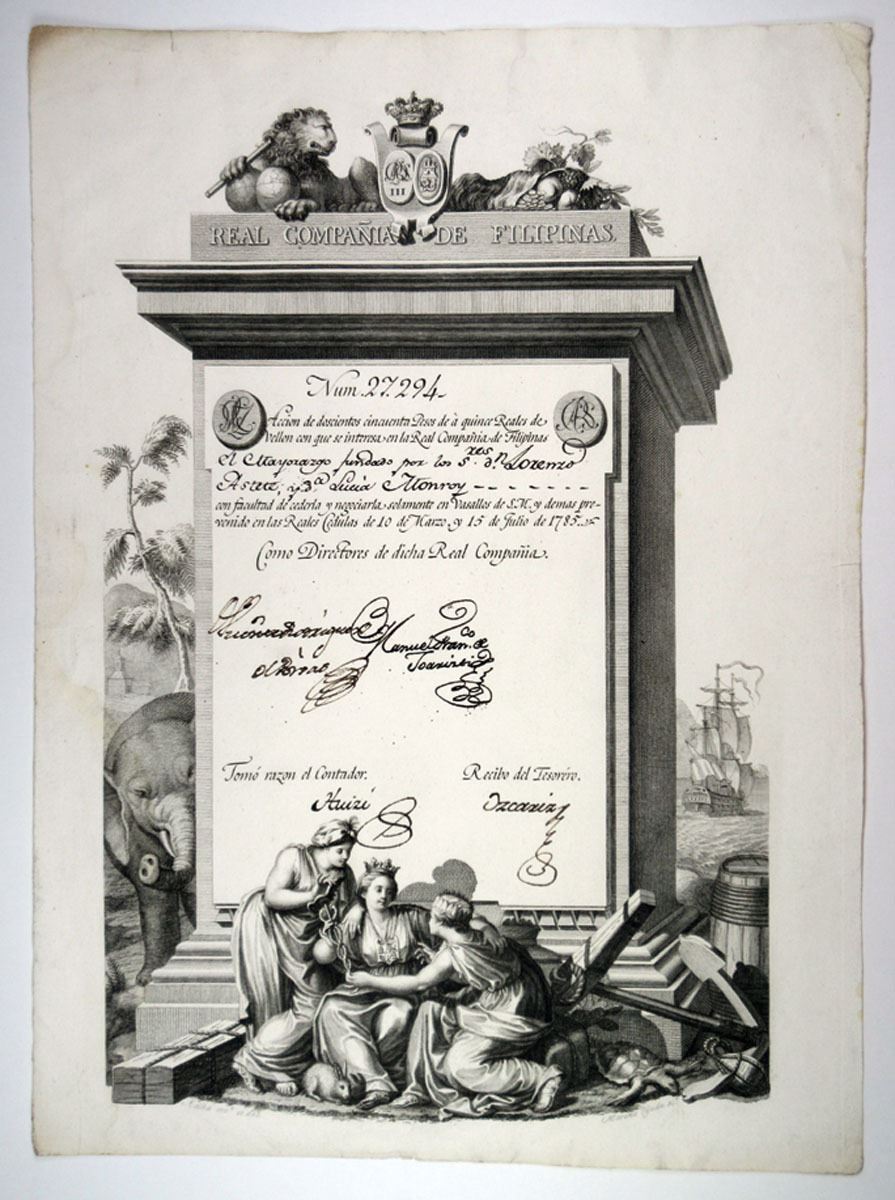 III
REAL COMPAÑIA DE FILIPINAS.
Num. 27.294.
Accion de doscientos cincuenta Pesos de à quince Reales de
vellon con que se interesa en la Real Compañia de Filipinas
el Mayorazgo fundado por los S.res d.n Lorenzo
Astete, y D.a Lucia Monroy
con facultad de cederla y negociarla solamente en Vasallos de S.M. y demas pre-
venido en las Reales Cedulas de 10 de Marzo, y 15 de Julio de 1785.
Como Directores de dicha Real Compañia.
Manuel Fran.co de
Tomó razon el Contador. Recibo del Tesoréro.